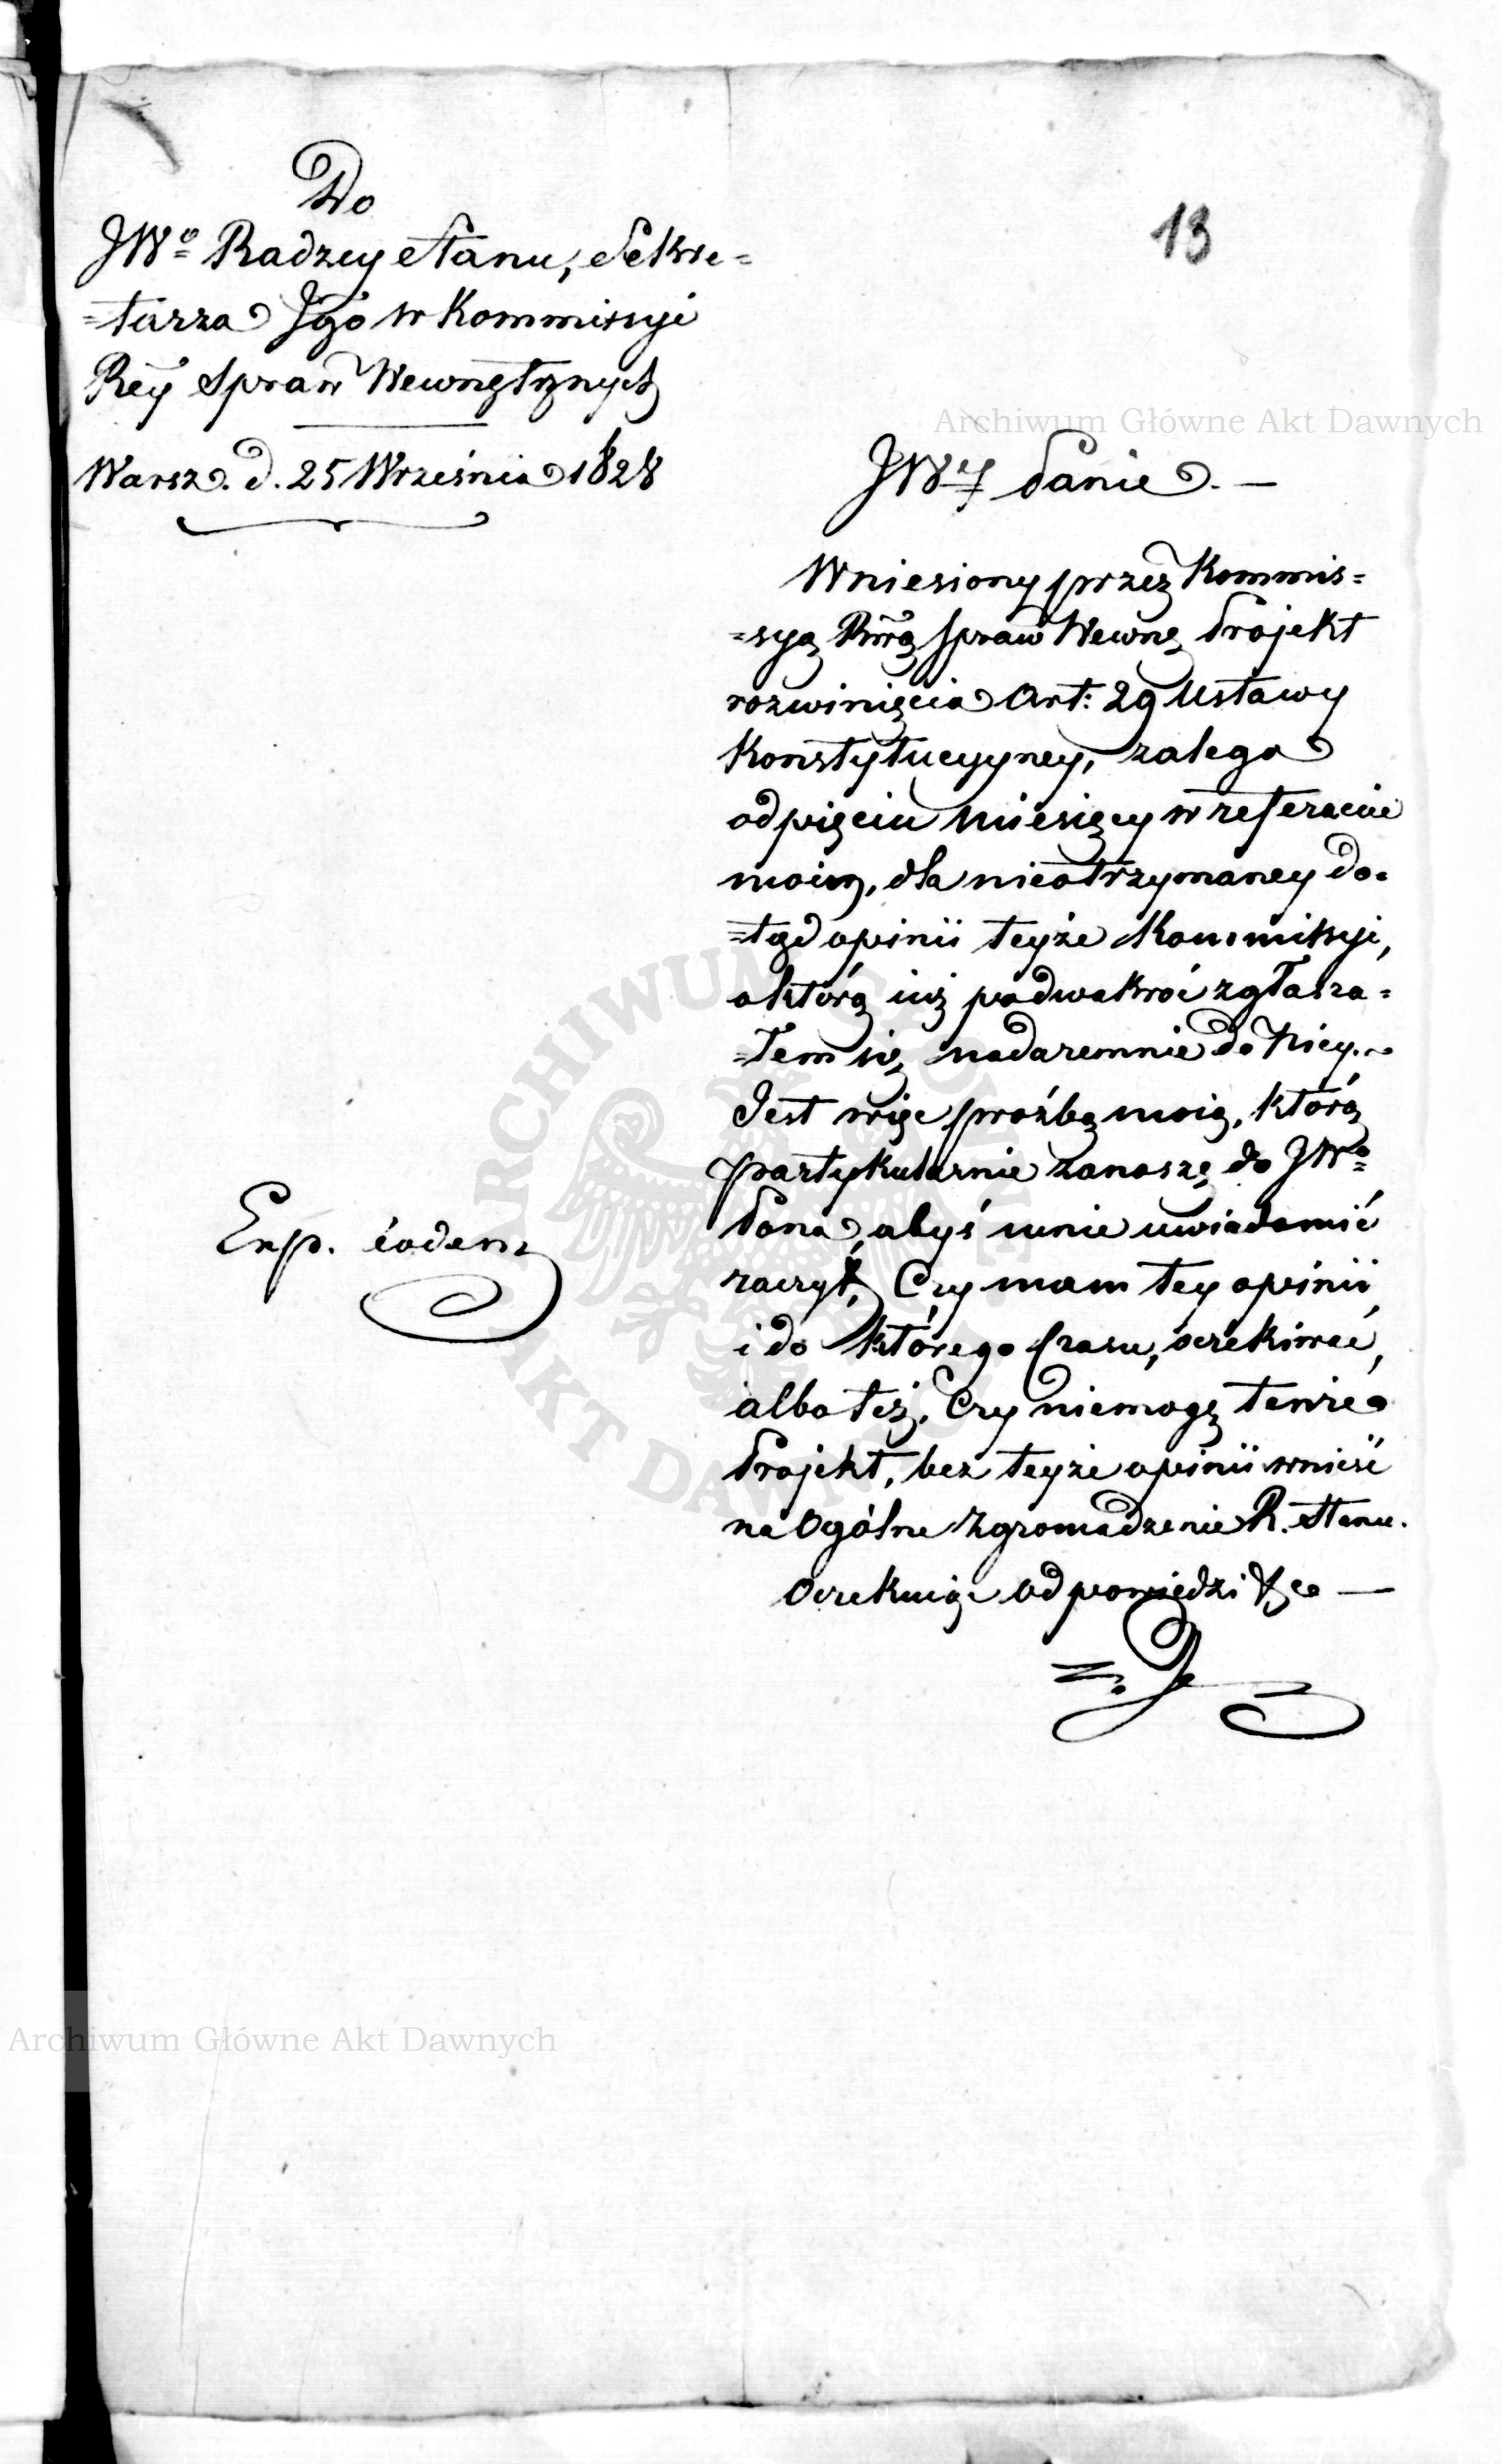 13
Do
JWº Radzcy Stanu, Sekre=
=tarza Jgo w Kommissyi
Rey Spraw Wewnętrznych
Warsz. d. 25 Września 1828
JWy Panie. —
Wniesiony przez Kommis=
=syą Rwą Spraw Wewnę Projekt
rozwinięcia Art: 29 Ustawy
Konstytucyyney, zalega
od pięciu Miesięcy w referacie
moim, dla nieotrzymaney do=
=tąd opinii teyże Kommissyi,
o którą iuż podwakroć zgłasza=
=łem się nadaremnie do Niey.
Jest więc proźbą moią, którą
partykularnie zanoszę do JWº
Pana, abyś mnie uwiadomić
raczył, Czy mam tey opinii
i do którego Czasu, oczekiwać,
albo też, Czy niemogę tenże
Projekt, bez teyże opinii wnieść
na Ogólne Zgromadzenie R. Stanu.
Oczekuiąc odpowiedzi &c —
Exp. eodem
Archiwum Główne Akt Dawnych
ARCHIWUM GŁÓWNE AKT DAWNYCH
Archiwum Główne Akt Dawnych